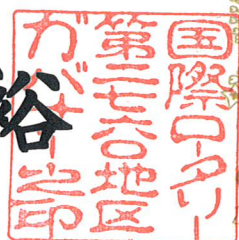 国際ロータリー
第二七六〇地区
ガバナー之印
裕